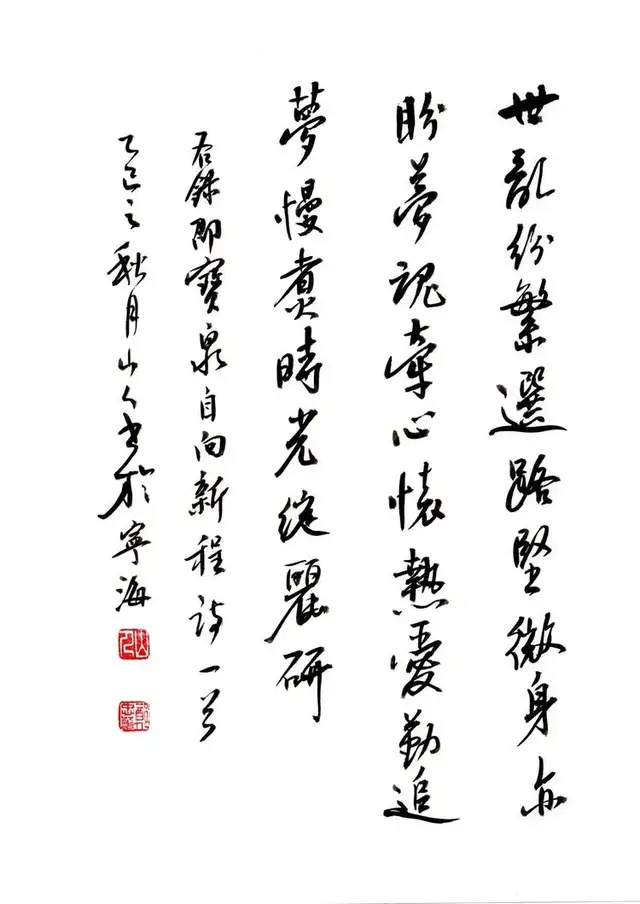 世亂紛繁選路堅微身亦
盼夢魂牽心懷熱愛勤追
夢慢煮時光綻麗研
右錄寶泉自向新程詩一首
乙巳之秋月山人書於寧海
山人